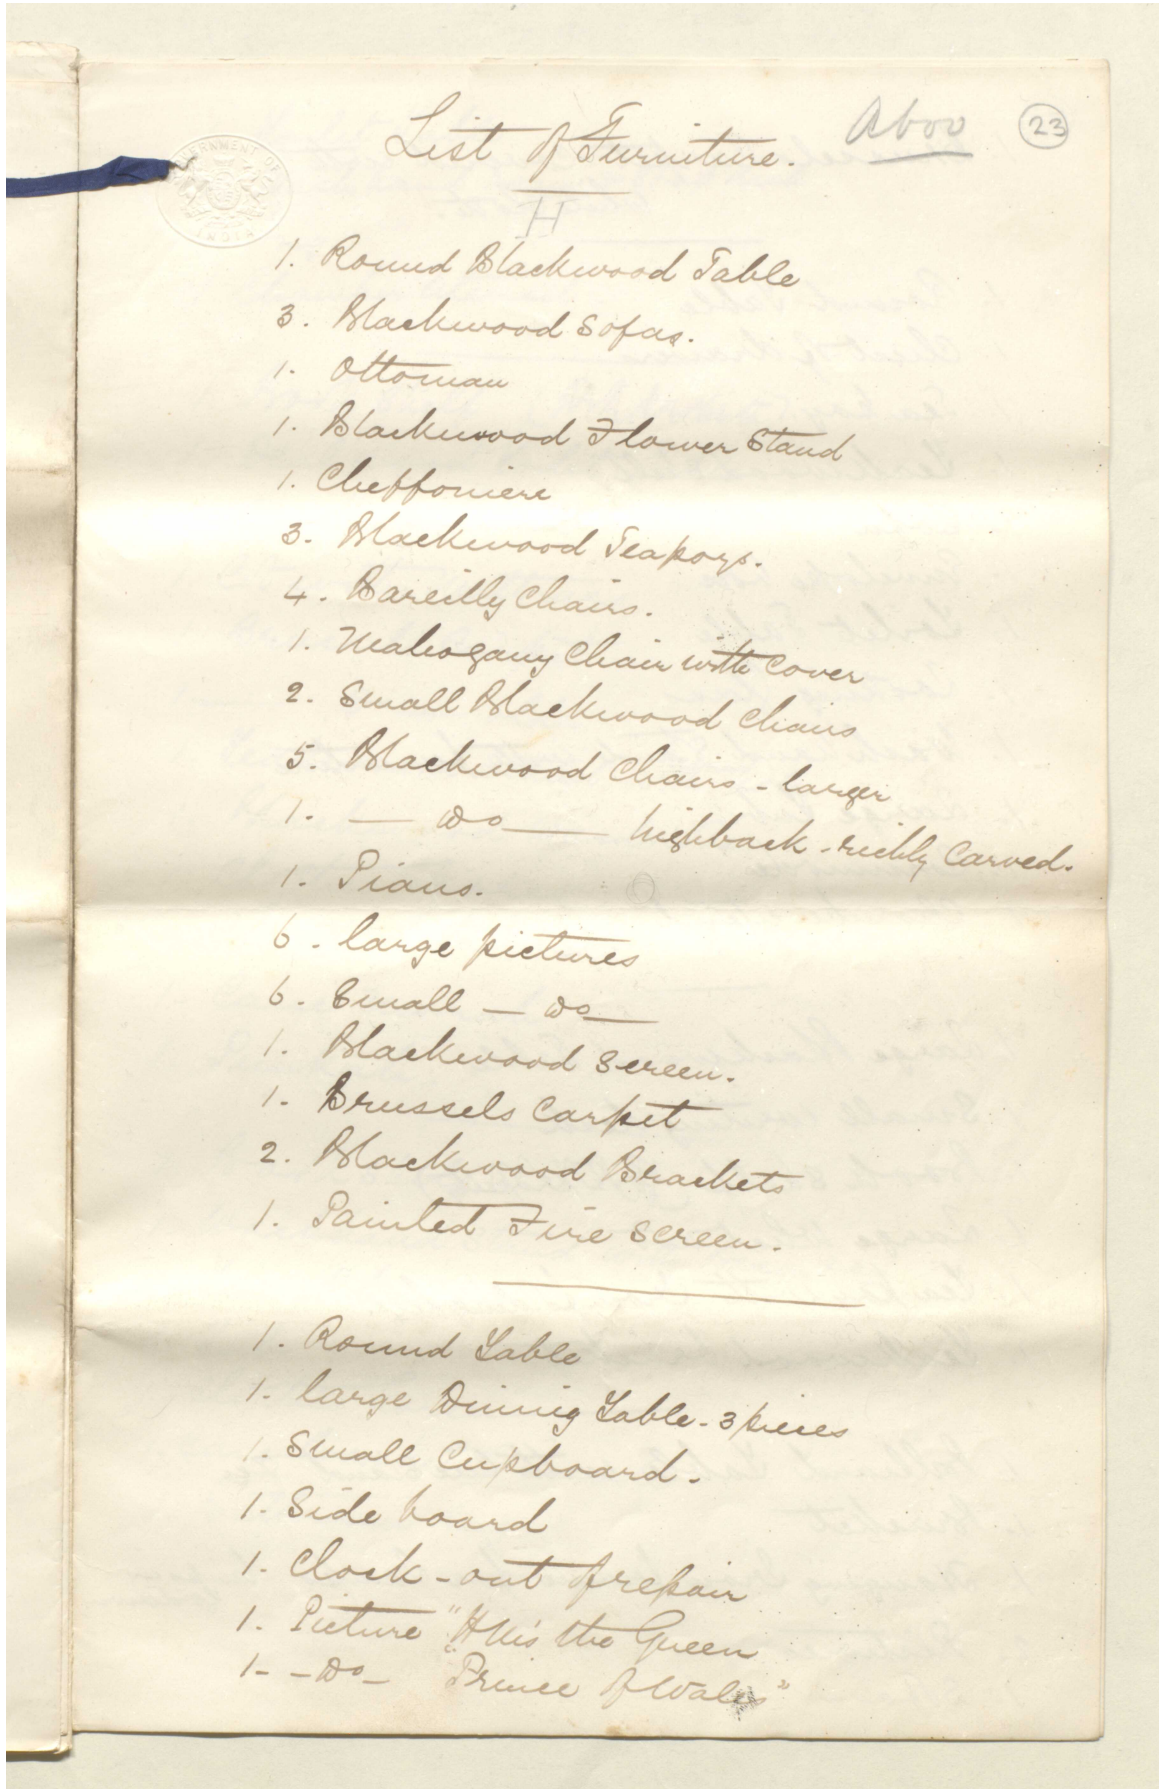 List of Furniture.
Aboo
23
GOVERNMENT OF
INDIA
H
1. Round Blackwood Table
3. Blackwood Sofas.
1. Ottoman
1. Blackwood Flower Stand
1. Cheffoniere
3. Blackwood Teapoys.
4. Bareilly Chairs.
1. Mahogany Chair with Cover
2. Small Blackwood Chairs
5. Blackwood Chairs - larger
1. — Do — highback - richly Carved.
1. Piano.
6. large pictures
6. Small — Do —
1. Blackwood Screen.
1. Brussels Carpet
2. Blackwood Brackets
1. Painted Fire Screen.
1. Round Table
1. large Dining Table - 3 pieces
1. Small Cupboard.
1. Side board
1. Clock - out of repair
1. Picture " the Queen
1 - Do - Prince of Wales"